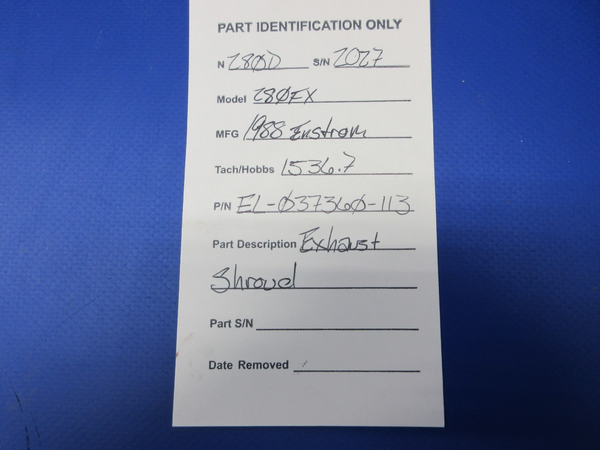 PART IDENTIFICATION ONLY
N 280D S/N 2027
Model 280FX
MFG 1988 Enstrom
Tach/Hobbs 1536.7
P/N EL-037360-113
Part Description Exhaust
Shroud
Part S/N
Date Removed